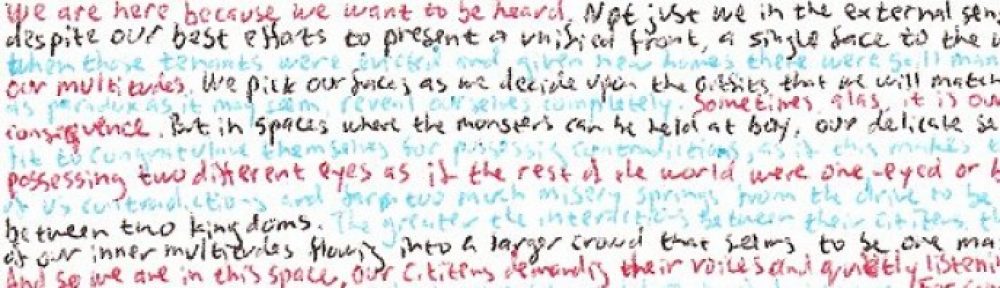 We are here because we want to be heard. Not just we in the external sen
despite our best efforts to present a unified front, a single face to the
when those tenants were evicted and given new homes there were still man
our multitudes. We pick our faces as we decide upon the outfits that we will match
as paradox as it may seem, reveal ourselves completely. Sometimes alas, it is our
consequence. But in spaces where the monsters can be held at bay, our delicate se
fit to congratulate themselves for possessing contradictions, as if this makes t
possessing two different eyes as if the rest of the world were one-eyed or b
of us contradictions and too much misery springs from the drive to be
between two kingdoms. The greater the interactions between their citizens th
of our inner multitudes flowing into a larger crowd that seems to be one ma
And so we are in this space, our citizens demanding their voices and quietly listenin